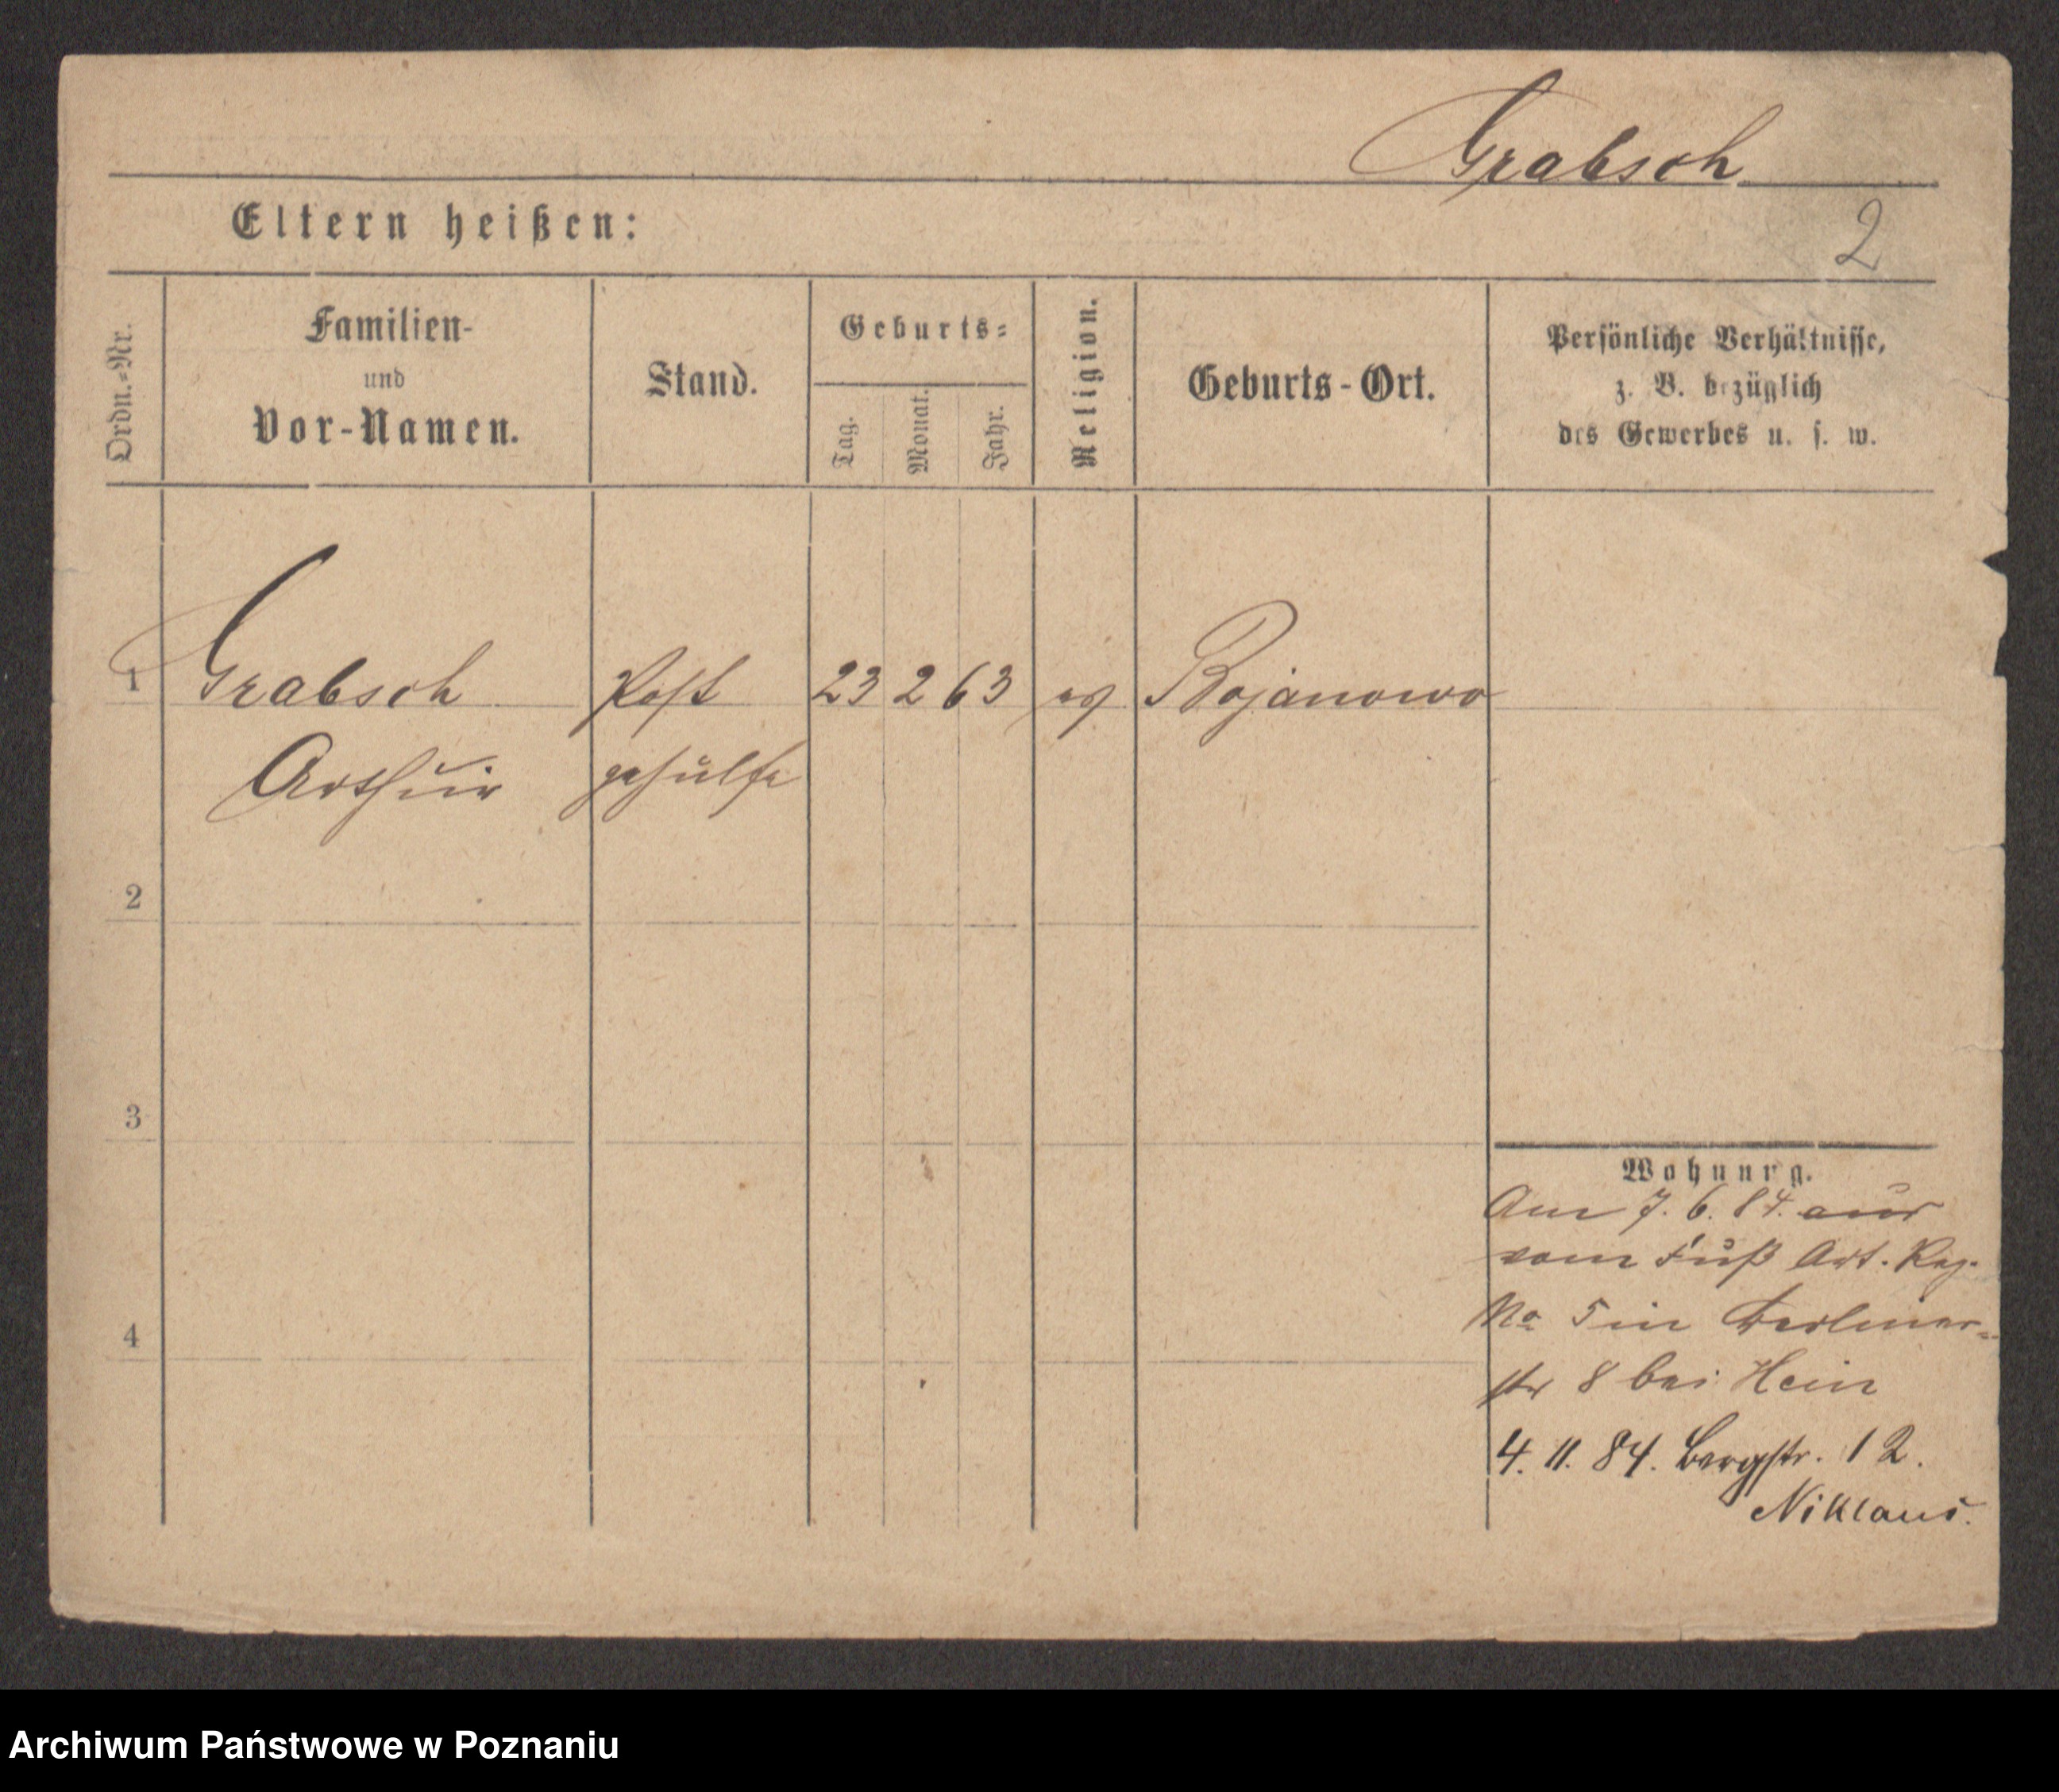 Grabsch
Eltern heißen:
2
Ordn.-Nr.
Familien-
und
Vor-Namen.
Stand.
Geburts-
Tag.
Monat.
Jahr.
Religion.
Geburts-Ort.
Persönliche Verhältnisse,
z. B. bezüglich
des Gewerbes u. s. w.
1 Grabsch Post 23 2 63 ev Bojanowo
Arthur gehülfe
2
3
Wohnung.
Am 7. 6. 84. aus
vom Fuß Art. Reg.
4
No 5 in Berliner-
str 8 bei Hein
4. 11. 84. Bergstr. 12.
Niklaus.
Archiwum Państwowe w Poznaniu